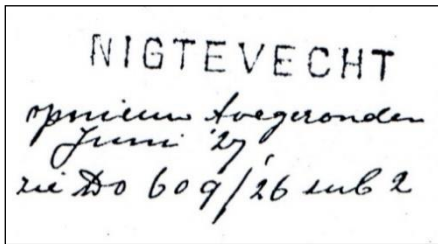 NIGTEVECHT
opnieuw toegezonden
Juni '27,
zie Do 609/26 sub 2